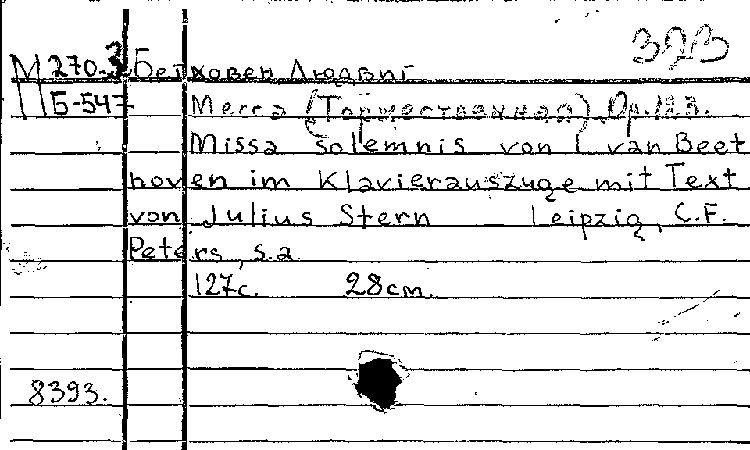 323
М270-3 Бетховен Людвиг
П Б-547 Месса (Торжественная). Op.123.
Missa solemnis von L van Beet
hoven im Klavierauszuge mit Text
von Julius Stern Leipzig, C.F.
Peters, s.a.
127с. 28см.
8393.